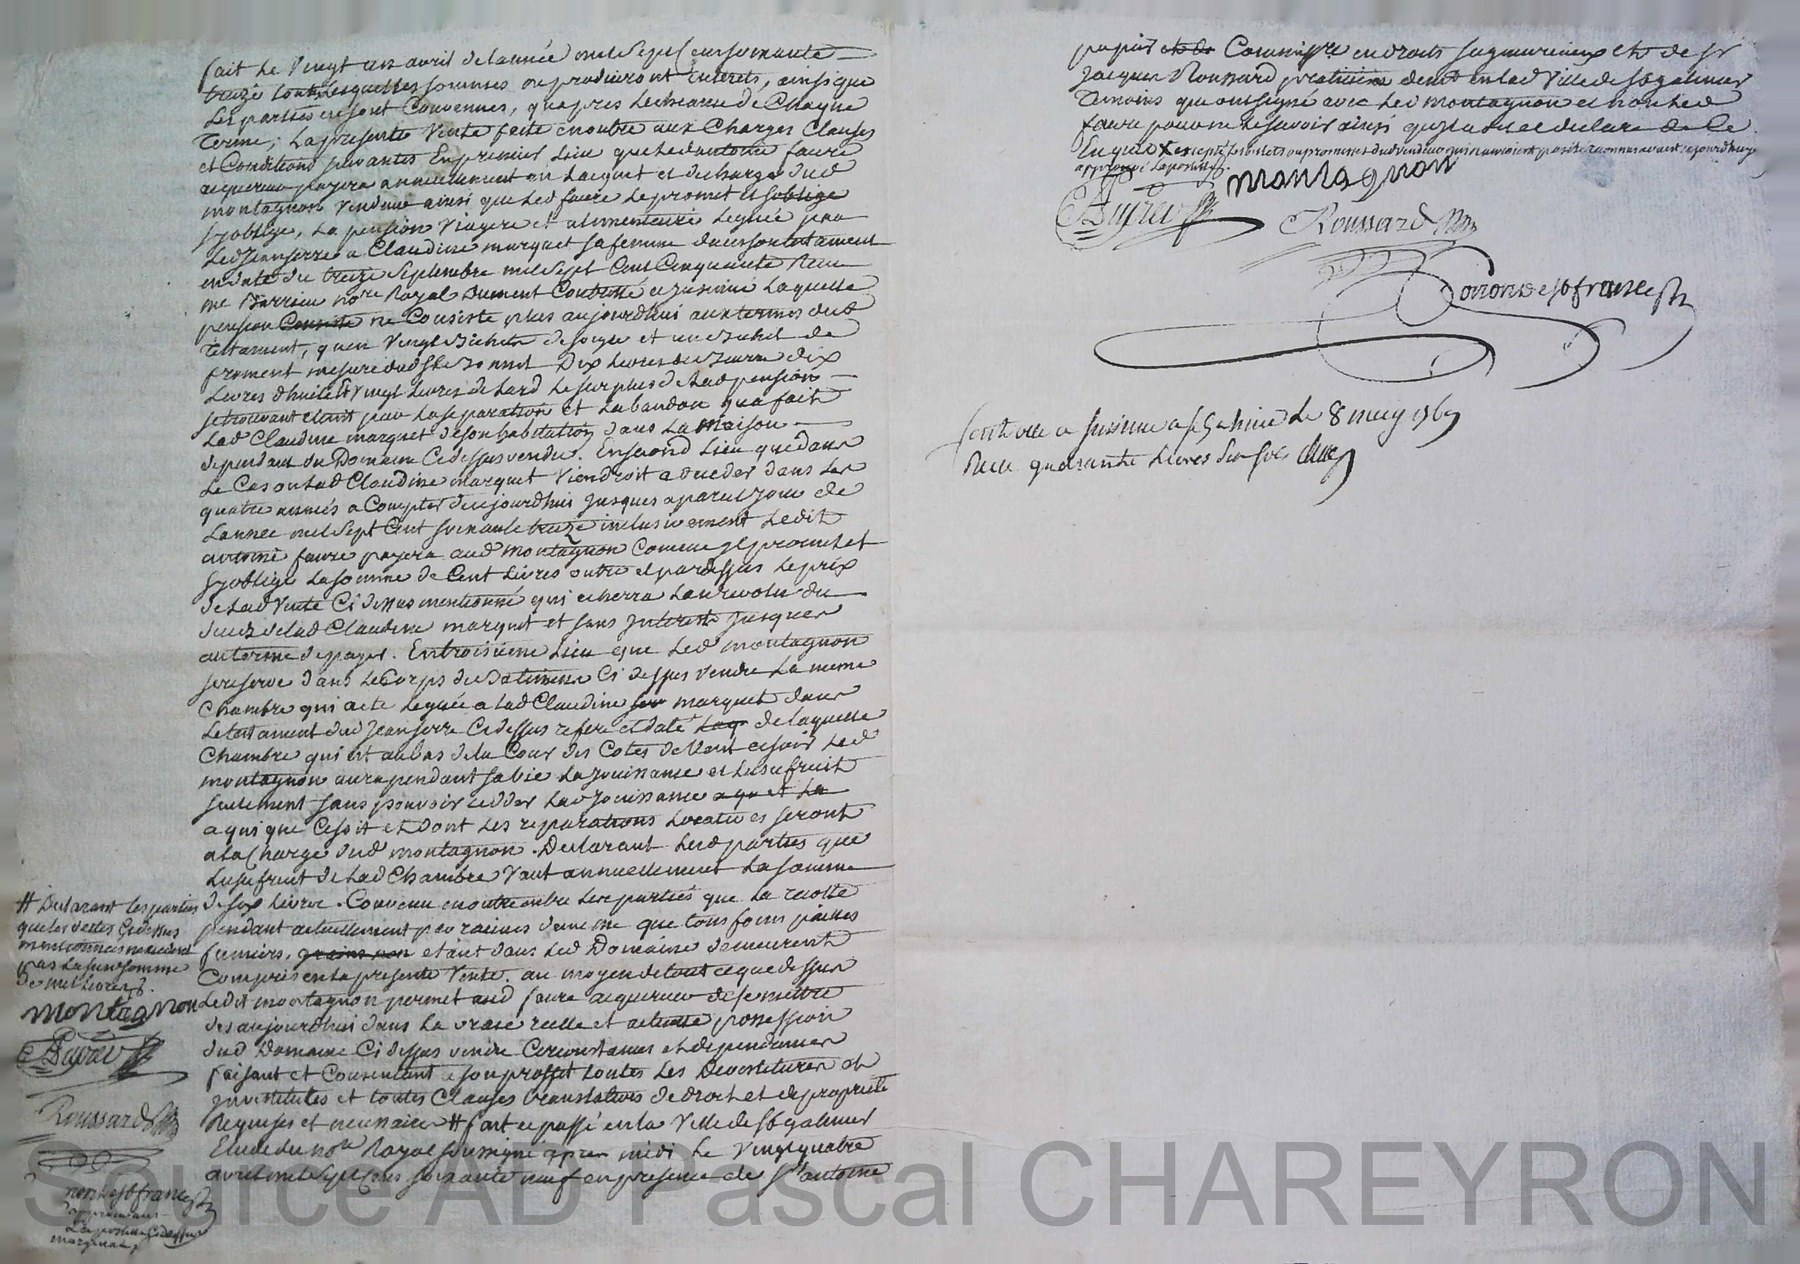 fait Le Vingt un avril de lannée mil Sept Cent soixante
treize toutes Lesquelles sommes ne produiront Interets, ainsi que
Les parties en sont Convenues, quapres Lecheance de Chaque
Terme; La presente Vente faite en outre aux Charges Clauses
et Conditions suivantes En premier Lieu que Led antoine faure
acquereur payera annuellement en Lacquit et decharge dud
montagnon Vendeur ainsi que Led faure Le promet et soblige
syoblige, La pension Viagere et alimentaire Leguée par
Led Jean serre a Claudine marquet sa femme dans son testament
en date du treize Septembre mil Sept Cent Cinquante neuf
me Barrieu nore Royal Dument Controllé et Insinué Laquelle
pension Consiste ne Consiste plus aujourdhui aux termes dud
Testament, quen Vingt Bichets de soigle et un Bichet de
froment mesure dud St Bonnet Dix Livres de Beurre dix
Livres dhuile et Vingt Livres de Lard Le surplus de Lad pension
se trouvant eteint par La separation et Labandon qua fait
Lad Claudine marquet de son habitation dans La Maison
dependant du Domaine Cidessus vendu. En second Lieu que dans
Le Cas ou Lad Claudine marquet Viendroit a deceder dans Les
quatre années a Compter daujourdhui Jusques a pareil Jour de
Lannée mil Sept Cent soixante treize inclusivement Ledit
antoine faure payera aud montagnon Comme Il promet et
syoblige La somme de Cent Livres outre et pardessus Le prix
de Lad Vente Ci dessus mentionné qui echerra Lan revolu du
deces de Lad Claudine marquet et sans Interets Jusques
au terme de payer. En troisieme Lieu que Led montagnon
se reserve dans Le Corps de Batiment Ci dessus Vendu La meme
Chambre qui a ete Leguée a Lad Claudine marquet dans
Le testament dud Jean serre Cidessus referé et daté Laq de Laquelle
Chambre qui est au bas de la Cour du Coté de Vent et soir Led
montagnon aura pendant sa vie La Jouissance et Lusufruit
seulement sans pouvoir Ceder Lad Jouissance a qu et La
a qui que Ce soit et dont Les reparations Locatives seront
a La Charge dud montagnon. Declarant Lesd parties que
Lusufruit de Lad Chambre Vaut annuellement La somme
de six Livres. Convenu en outre entre Les parties que La recolte
pendant actuellement par racines de meme que tous foins pailles
fumiers, grains non etant dans Led Domaine demeurent
Compris en La presente Vente. au moyen de tout ce que dessus
Ledit montagnon permet aud faure acquereur de se mettre
des aujourdhui dans La vraie reelle et actuelle possession
dud Domaine Ci dessus vendu Circonstances et dependances
faisant et Consentant a son proffit toutes Les Devestitures et
Investitures et toutes Clauses translatives de droit et de proprieté
Requises et necessaires # fait et passé en la Ville de St galmier
Etude du nore Royal soussigné apres midi Le Vingt quatre
avril mil Sept Cent soixante neuf en presence de Sr antoine
# Declarant Les parties
que Les dettes Cidessus
mentionnées nexcedent
pas La somme
de mil Livres.
montagnon
Dupuy
Roussard
non de St francois
approuvant
Le postille Cidessus
marginal
papir et de Commissre en droits seigneuriaux et de sr
Jacques Roussard praticien demt en Lad Ville de St galmier
Temoins qui ont signé avec Led montagnon et non Led
faure pour ne Le savoir ainsi quil a dit et declaré de Ce
Enquis X excepté Les billets ou promesses dud vendeur qui nauroient pas eté reconnus avant cejourdhuy
approuvé La postille.
montagnon
Dupuy
Roussard
Ponon de St francois
Controllé et Insinué a St Galmier Le 8 may 1769
Recu quarante Livres six sols